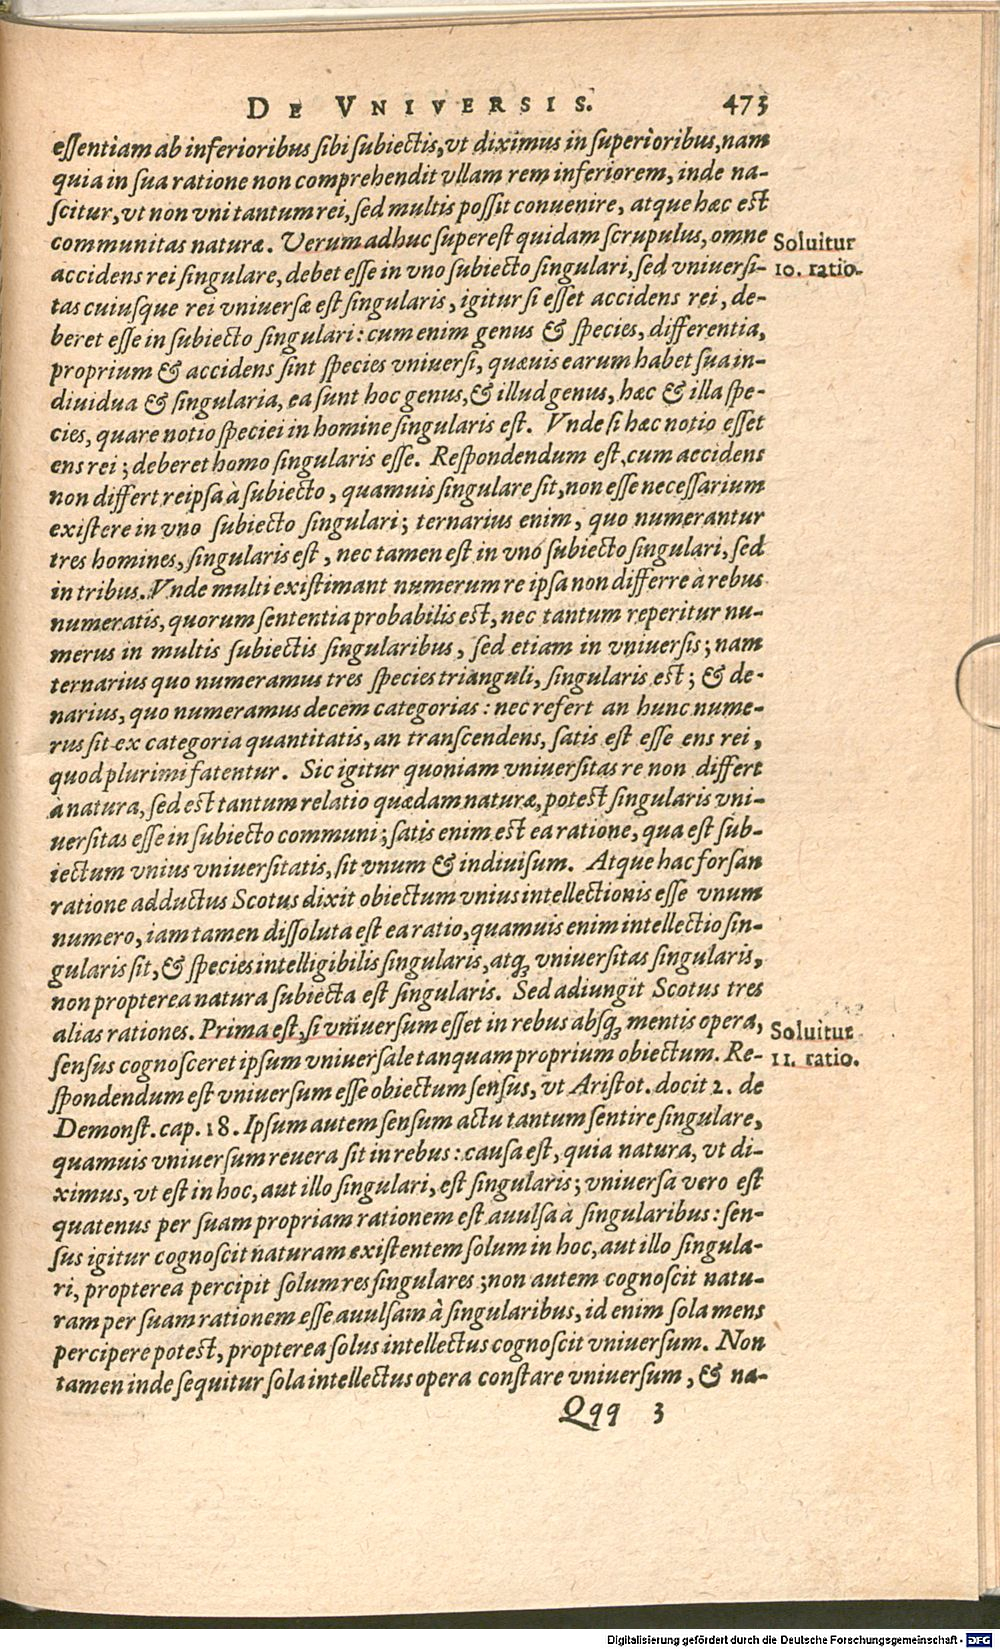 DE VNIVERSIS. 473
essentiam ab inferioribus sibi subiectis, vt diximus in superioribus, nam
quia in sua ratione non comprehendit vllam rem inferiorem, inde na-
scitur, vt non vni tantum rei, sed multis possit conuenire, atque hæc est
communitas naturæ. Verum adhuc superest quidam scrupulus, omne
Soluitur
10. ratio.
accidens rei singulare, debet esse in vno subiecto singulari, sed vniuersi-
tas cuiusque rei vniuersæ est singularis, igitur si esset accidens rei, de-
beret esse in subiecto singulari: cum enim genus & species, differentia,
proprium & accidens sint species vniuersi, quæuis earum habet sua in-
diuidua & singularia, ea sunt hoc genus, & illud genus, hæc & illa spe-
cies, quare notio speciei in homine singularis est. Vnde si hæc notio esset
ens rei; deberet homo singularis esse. Respondendum est, cum accidens
non differt reipsa à subiecto, quamuis singulare sit, non esse necessarium
existere in vno subiecto singulari; ternarius enim, quo numerantur
tres homines, singularis est, nec tamen est in vno subiecto singulari, sed
in tribus. Vnde multi existimant numerum re ipsa non differre à rebus
numeratis, quorum sententia probabilis est, nec tantum reperitur nu-
merus in multis subiectis singularibus, sed etiam in vniuersis; nam
ternarius quo numeramus tres species trianguli, singularis est; & de-
narius, quo numeramus decem categorias: nec refert an hunc nume-
rus sit ex categoria quantitatis, an transcendens, satis est esse ens rei,
quod plurimi fatentur. Sic igitur quoniam vniuersitas re non differt
à natura, sed est tantum relatio quædam naturæ, potest singularis vni-
uersitas esse in subiecto communi; satis enim est ea ratione, qua est sub-
iectum vnius vniuersitatis, sit vnum & indiuisum. Atque hac forsan
ratione adductus Scotus dixit obiectum vnius intellectionis esse vnum
numero, iam tamen dissoluta est ea ratio, quamuis enim intellectio sin-
gularis sit, & species intelligibilis singularis, atq; vniuersitas singularis,
non propterea natura subiecta est singularis. Sed adiungit Scotus tres
alias rationes. Prima est, si vniuersum esset in rebus absq; mentis opera,
Soluitur
11. ratio.
sensus cognosceret ipsum vniuersale tanquam proprium obiectum. Re-
spondendum est vniuersum esse obiectum sensus, vt Aristot. docit 2. de
Demonst. cap. 18. Ipsum autem sensum actu tantum sentire singulare,
quamuis vniuersum reuera sit in rebus: causa est, quia natura, vt di-
ximus, vt est in hoc, aut illo singulari, est singularis; vniuersa vero est
quatenus per suam propriam rationem est auulsa à singularibus: sen-
sus igitur cognoscit naturam existentem solum in hoc, aut illo singula-
ri, propterea percipit solum res singulares; non autem cognoscit natu-
ram per suam rationem esse auulsam à singularibus, id enim sola mens
percipere potest, propterea solus intellectus cognoscit vniuersum. Non
tamen inde sequitur sola intellectus opera constare vniuersum, & na-
Qqq 3
Digitalisierung gefördert durch die Deutsche Forschungsgemeinschaft - DFG